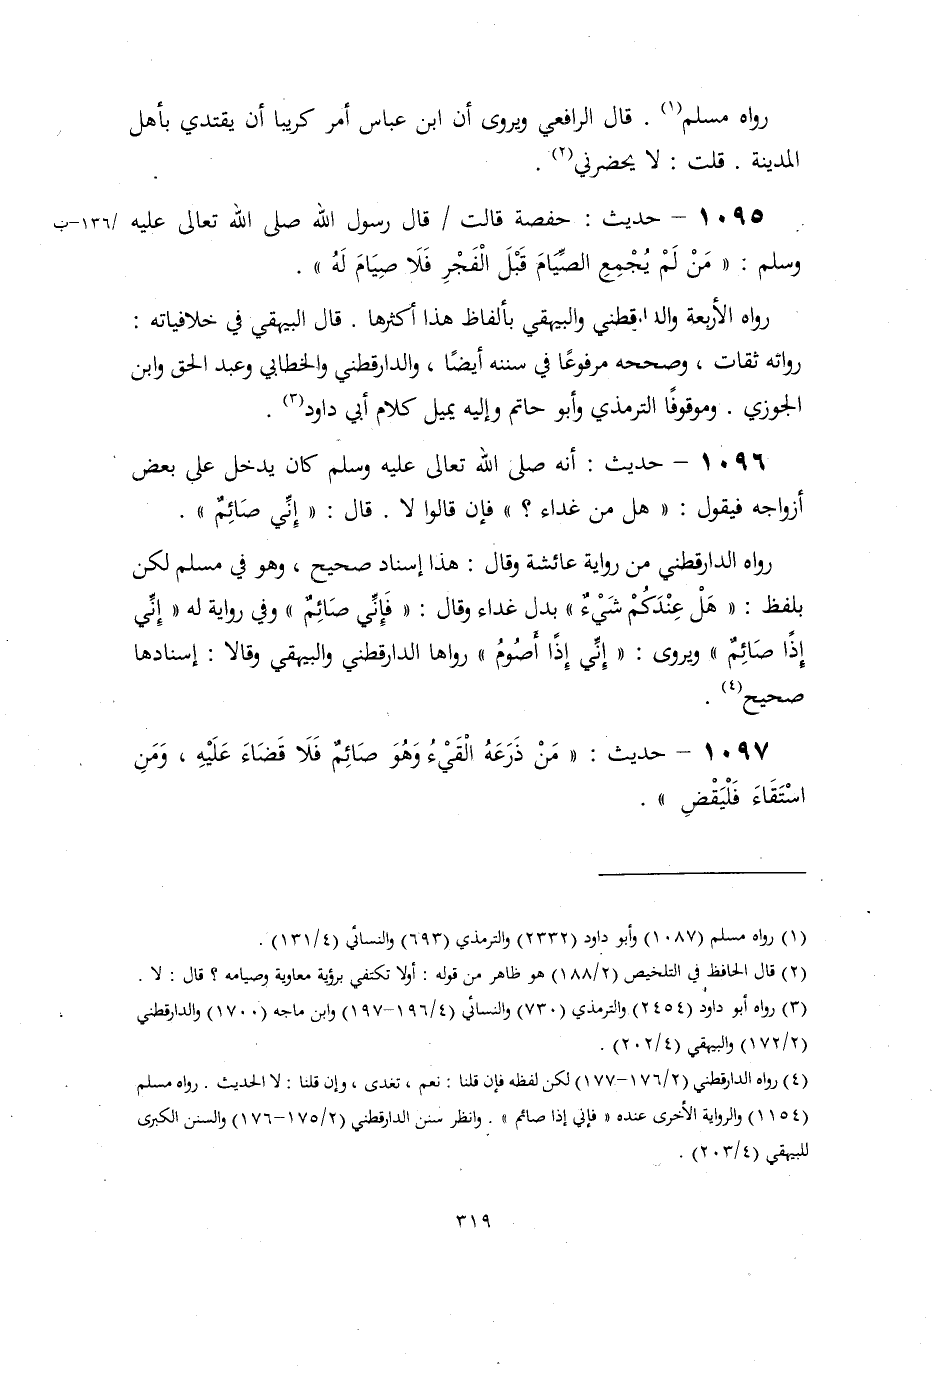 رواه مسلم(١) . قال الرافعي ويروى أن ابن عباس أمر كريبا أن يقتدي بأهل
المدينة . قلت : لا يحضرني(٢) .
١٠٩٥ – حديث : حفصة قالت / قال رسول الله صلى الله تعالى عليه /١٣٦–ب
وسلم : « مَنْ لَمْ يُجْمِعِ الصِّيَامَ قَبْلَ الْفَجْرِ فَلَا صِيَامَ لَهُ » .
رواه الأربعة والدارقطني والبيهقي بألفاظ هذا أكثرها . قال البيهقي في خلافياته :
رواته ثقات ، وصححه مرفوعًا في سننه أيضًا ، والدارقطني والخطابي وعبد الحق وابن
الجوزي . وموقوفًا الترمذي وأبو حاتم وإليه يميل كلام أبي داود(٣) .
١٠٩٦ – حديث : أنه صلى الله تعالى عليه وسلم كان يدخل على بعض
أزواجه فيقول : « هل من غداء ؟ » فإن قالوا لا . قال : « إِنِّي صَائِمٌ » .
رواه الدارقطني من رواية عائشة وقال : هذا إسناد صحيح ، وهو في مسلم لكن
بلفظ : « هَلْ عِنْدَكُمْ شَيْءٌ » بدل غداء وقال : « فَإِنِّي صَائِمٌ » وفي رواية له « إِنِّي
إِذًا صَائِمٌ » ويروى : « إِنِّي إِذًا أَصُومُ » رواها الدارقطني والبيهقي وقالا : إسنادها
صحيح(٤) .
١٠٩٧ – حديث : « مَنْ ذَرَعَهُ الْقَيْءُ وَهُوَ صَائِمٌ فَلَا قَضَاءَ عَلَيْهِ ، وَمَنِ
اسْتَقَاءَ فَلْيَقْضِ » .
(١) رواه مسلم (١٠٨٧) وأبو داود (٢٣٣٢) والترمذي (٦٩٣) والنسائي (١٣١/٤) .
(٢) قال الحافظ في التلخيص (١٨٨/٢) هو ظاهر من قوله : أولا تكتفي برؤية معاوية وصيامه ؟ قال : لا .
(٣) رواه أبو داود (٢٤٥٤) والترمذي (٧٣٠) والنسائي (١٩٦/٤–١٩٧) وابن ماجه (١٧٠٠) والدارقطني
(١٧٢/٢) والبيهقي (٢٠٢/٤) .
(٤) رواه الدارقطني (١٧٦/٢–١٧٧) لكن لفظه فإن قلنا : نعم ، تغدى ، وإن قلنا : لا الحديث . رواه مسلم
(١١٥٤) والرواية الأخرى عنده « فإني إذا صائم » . وانظر سنن الدارقطني (١٧٥/٢–١٧٦) والسنن الكبرى
للبيهقي (٢٠٣/٤) .
٣١٩